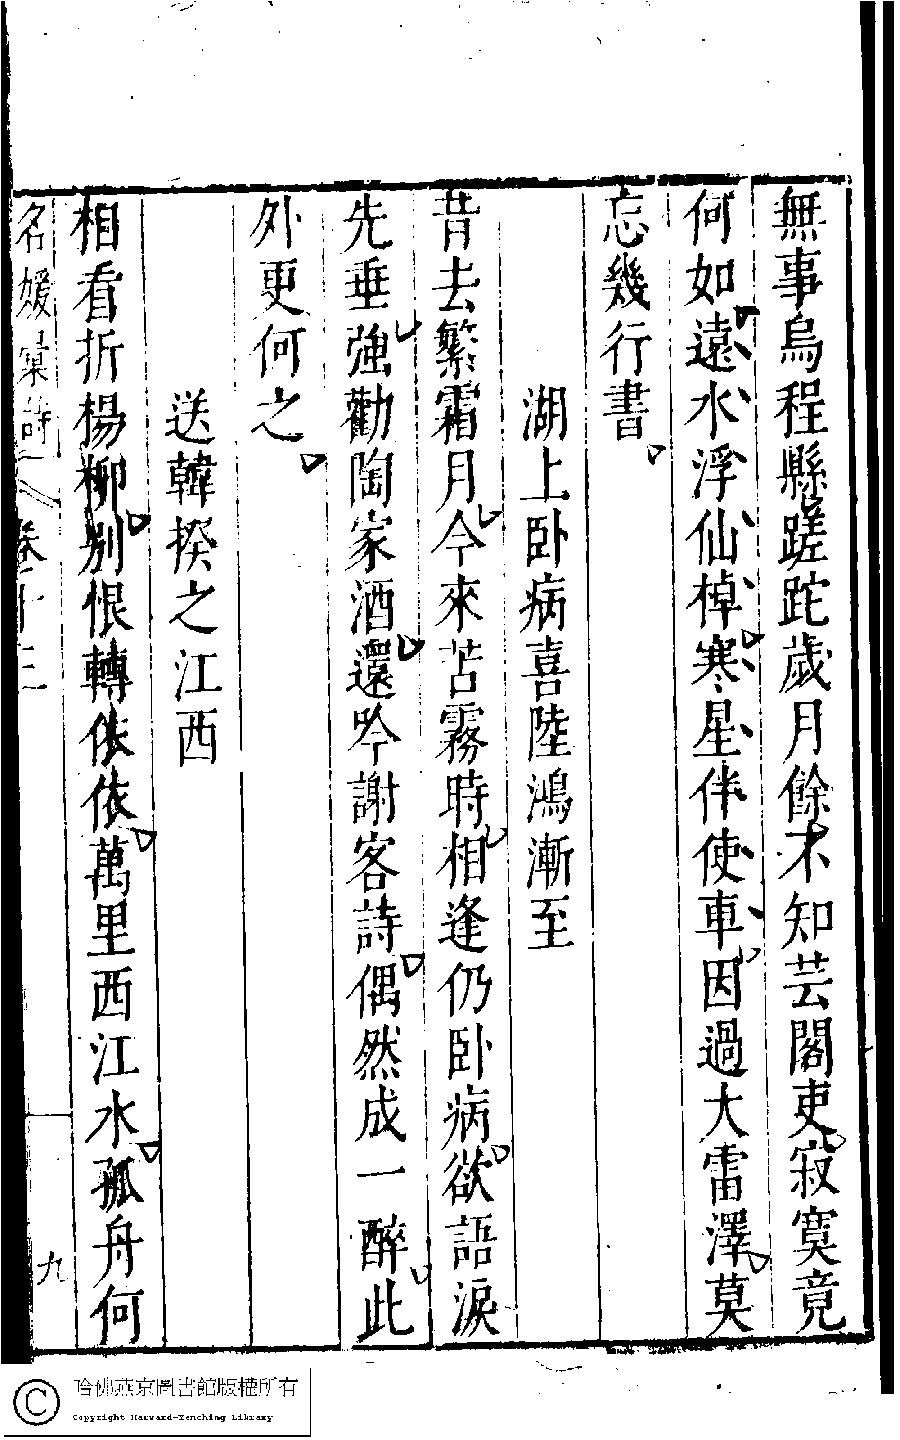 無事烏程縣蹉跎歲月餘不知芸閣吏寂寞竟
何如遠水浮仙棹寒星伴使車因過大雷澤莫
忘幾行書
湖上卧病喜陸鴻漸至
昔去繁霜月今來苦霧時相逢仍卧病欲語淚
先垂強勸陶家酒還吟謝客詩偶然成一醉此
外更何之
送韓揆之江西
相看折楊柳別恨轉依依萬里西江水孤舟何
名媛彙詩 卷十三
九
哈佛燕京圖書館版權所有
Copyright Harvard-Yenching Library